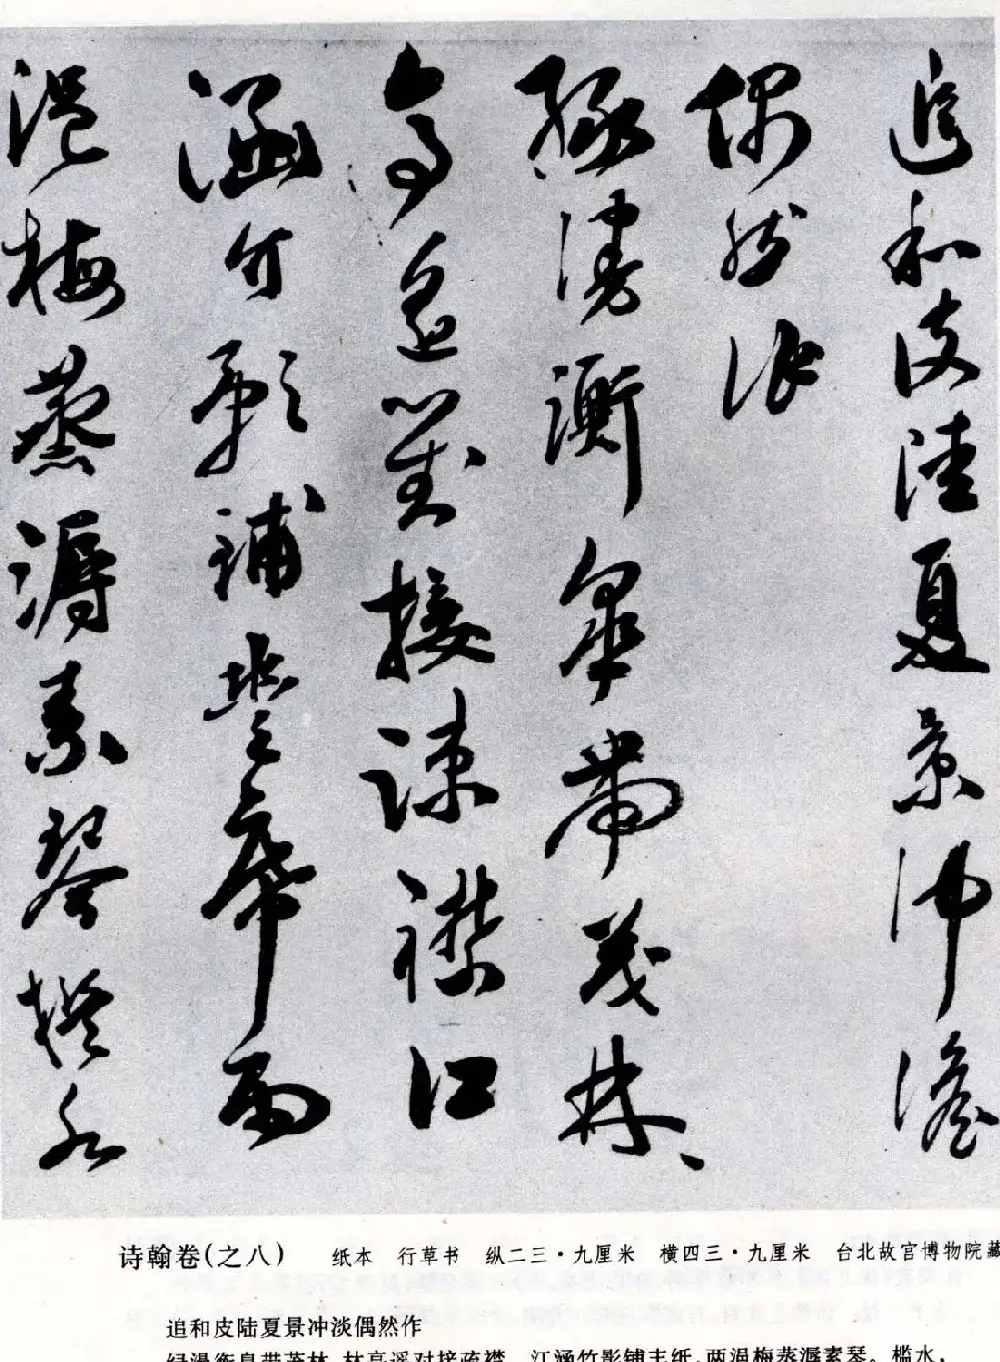 追和皮陆夏景冲澹
偶然作
绿漫衡皋带茂林、林
亭遥对接疎襟江
涵竹影铺𡉏䒑雨
浥梅蒸溽素琴槛水
诗翰卷(之八) 纸本 行草书 纵二三·九厘米 横四三·九厘米 台北故宫博物院藏
追和皮陆夏景冲淡偶然作
绿漫衡皋带茂林,林亭遥对接疏襟。江涵竹影铺圭纸,雨浥梅蒸溽素琴。槛水,